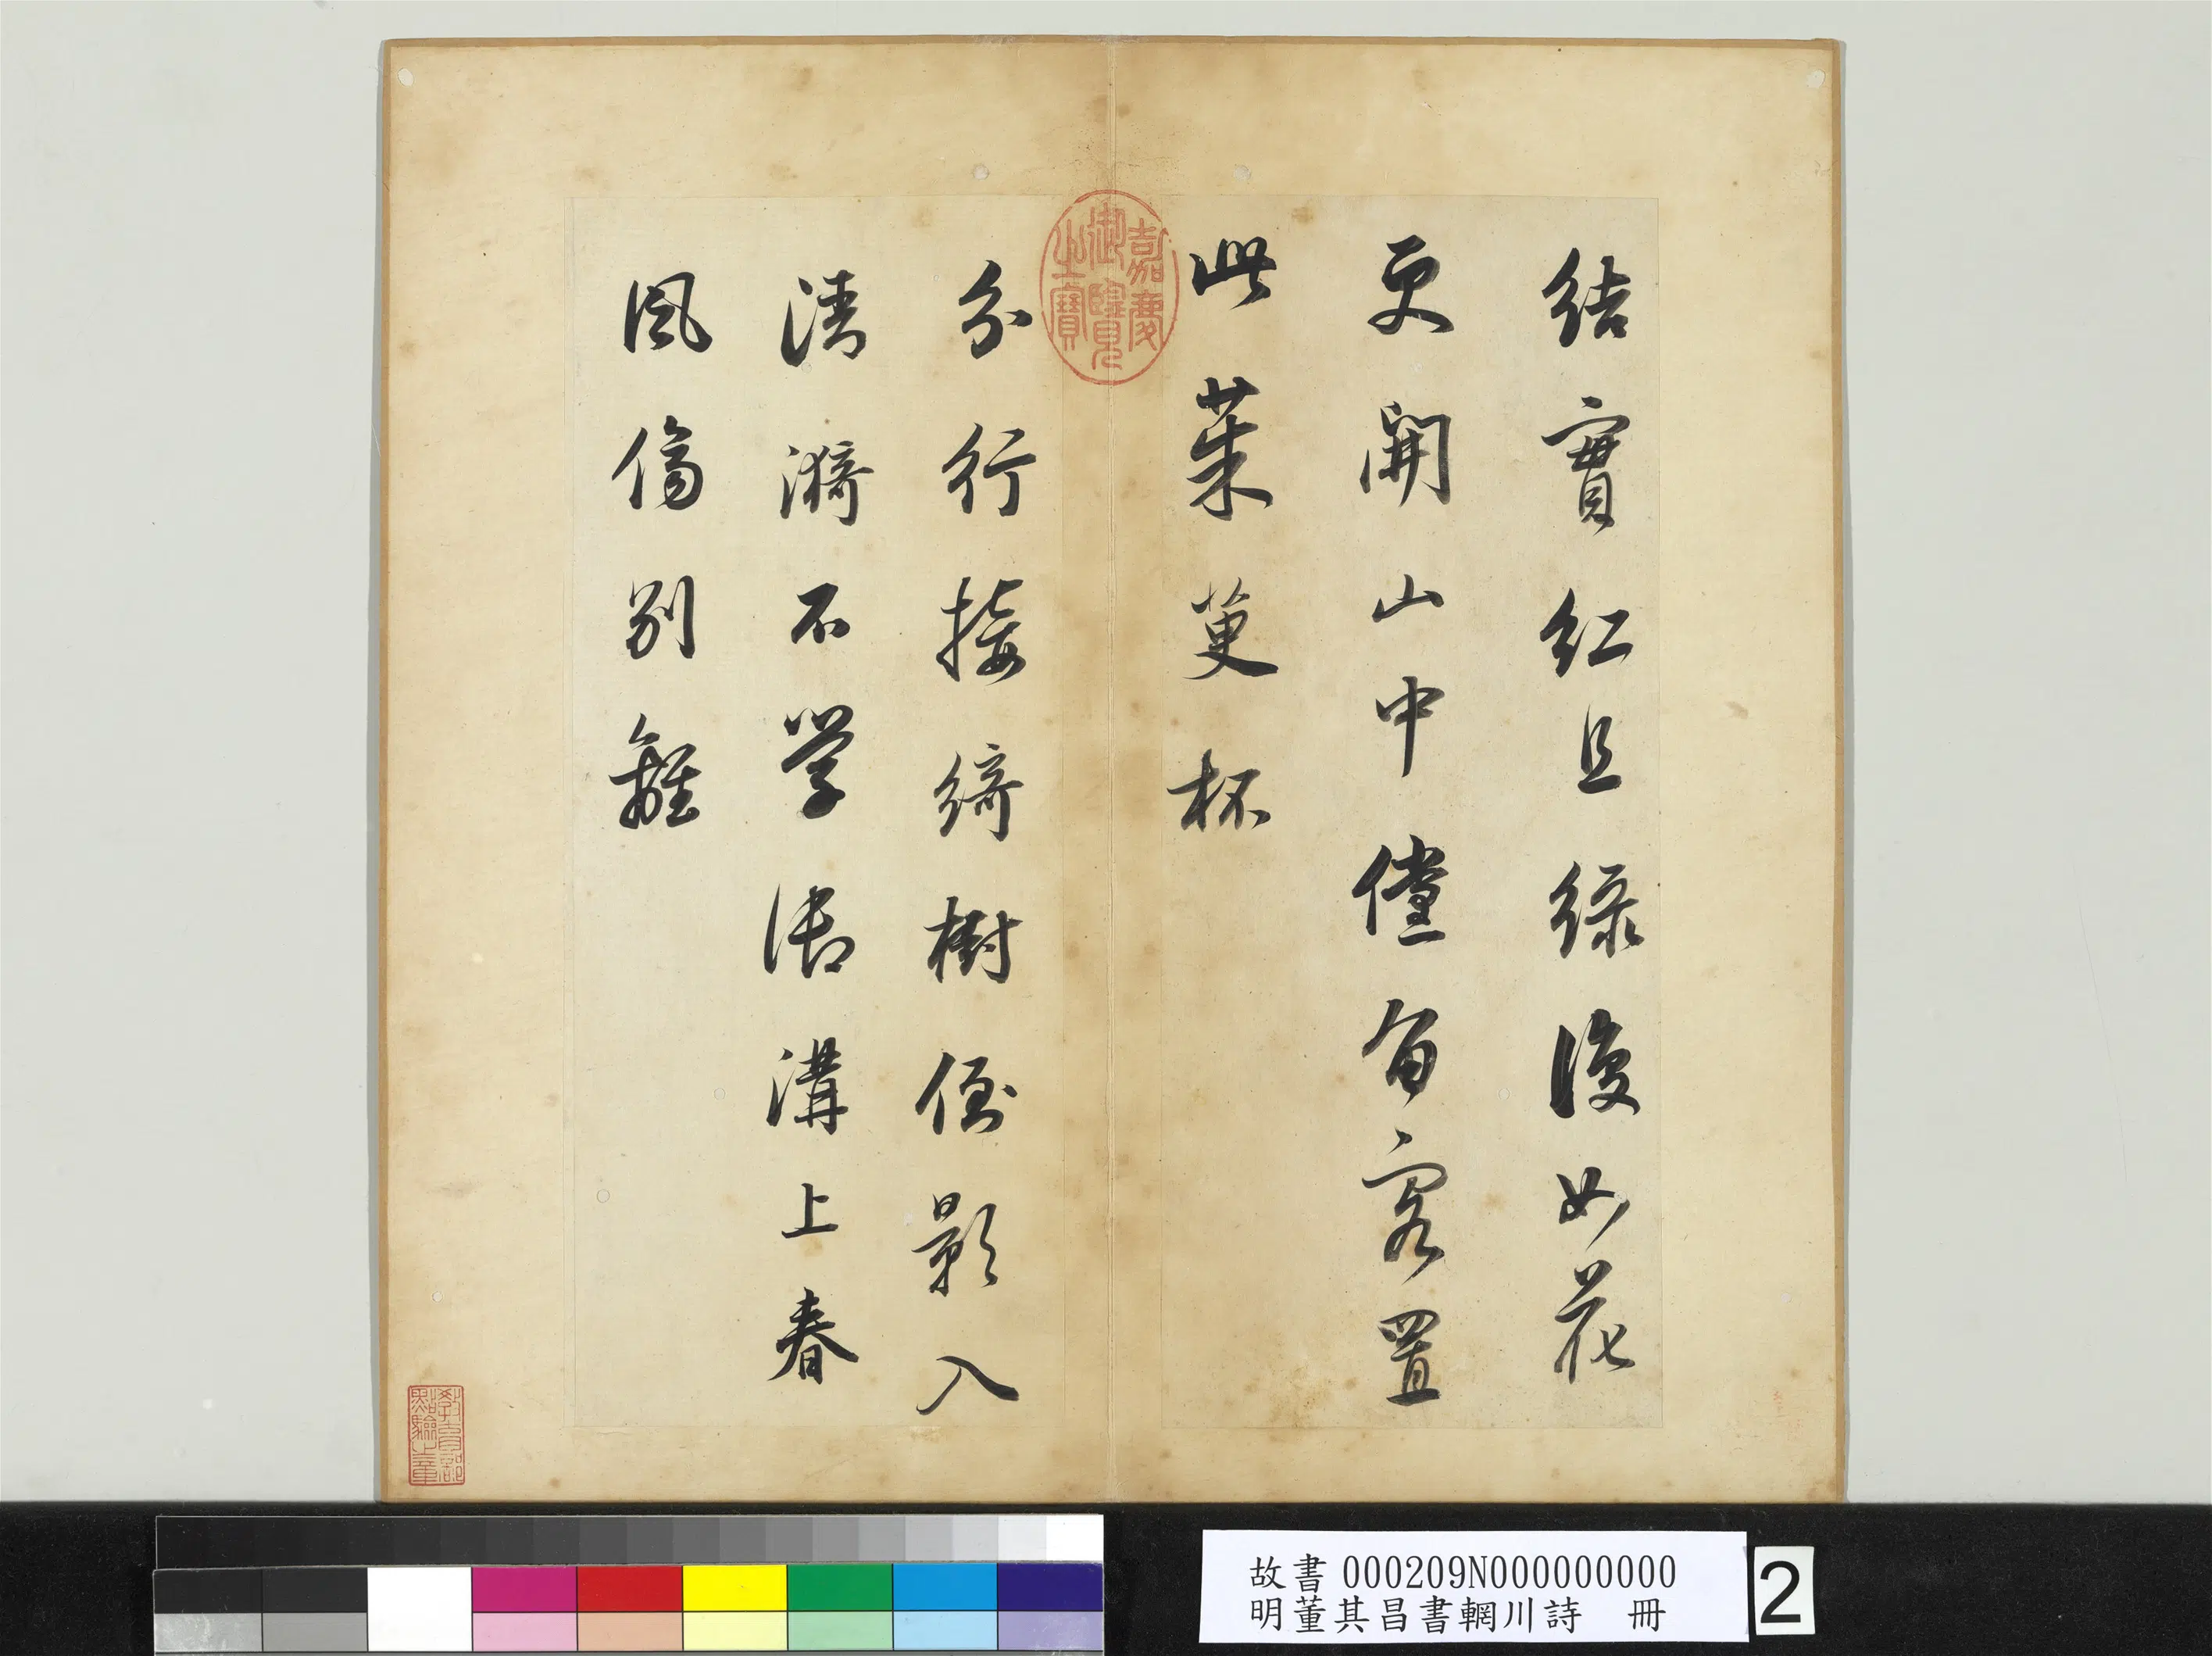 結實紅且綠復如花
更開山中儻留客置
此茱萸杯
分行接綺樹倒影入
清漪不學御溝上春
風傷別離
嘉慶
御覽
之寶
教育部
點驗之章
故書 000209N000000000
明董其昌書輞川詩 冊
2